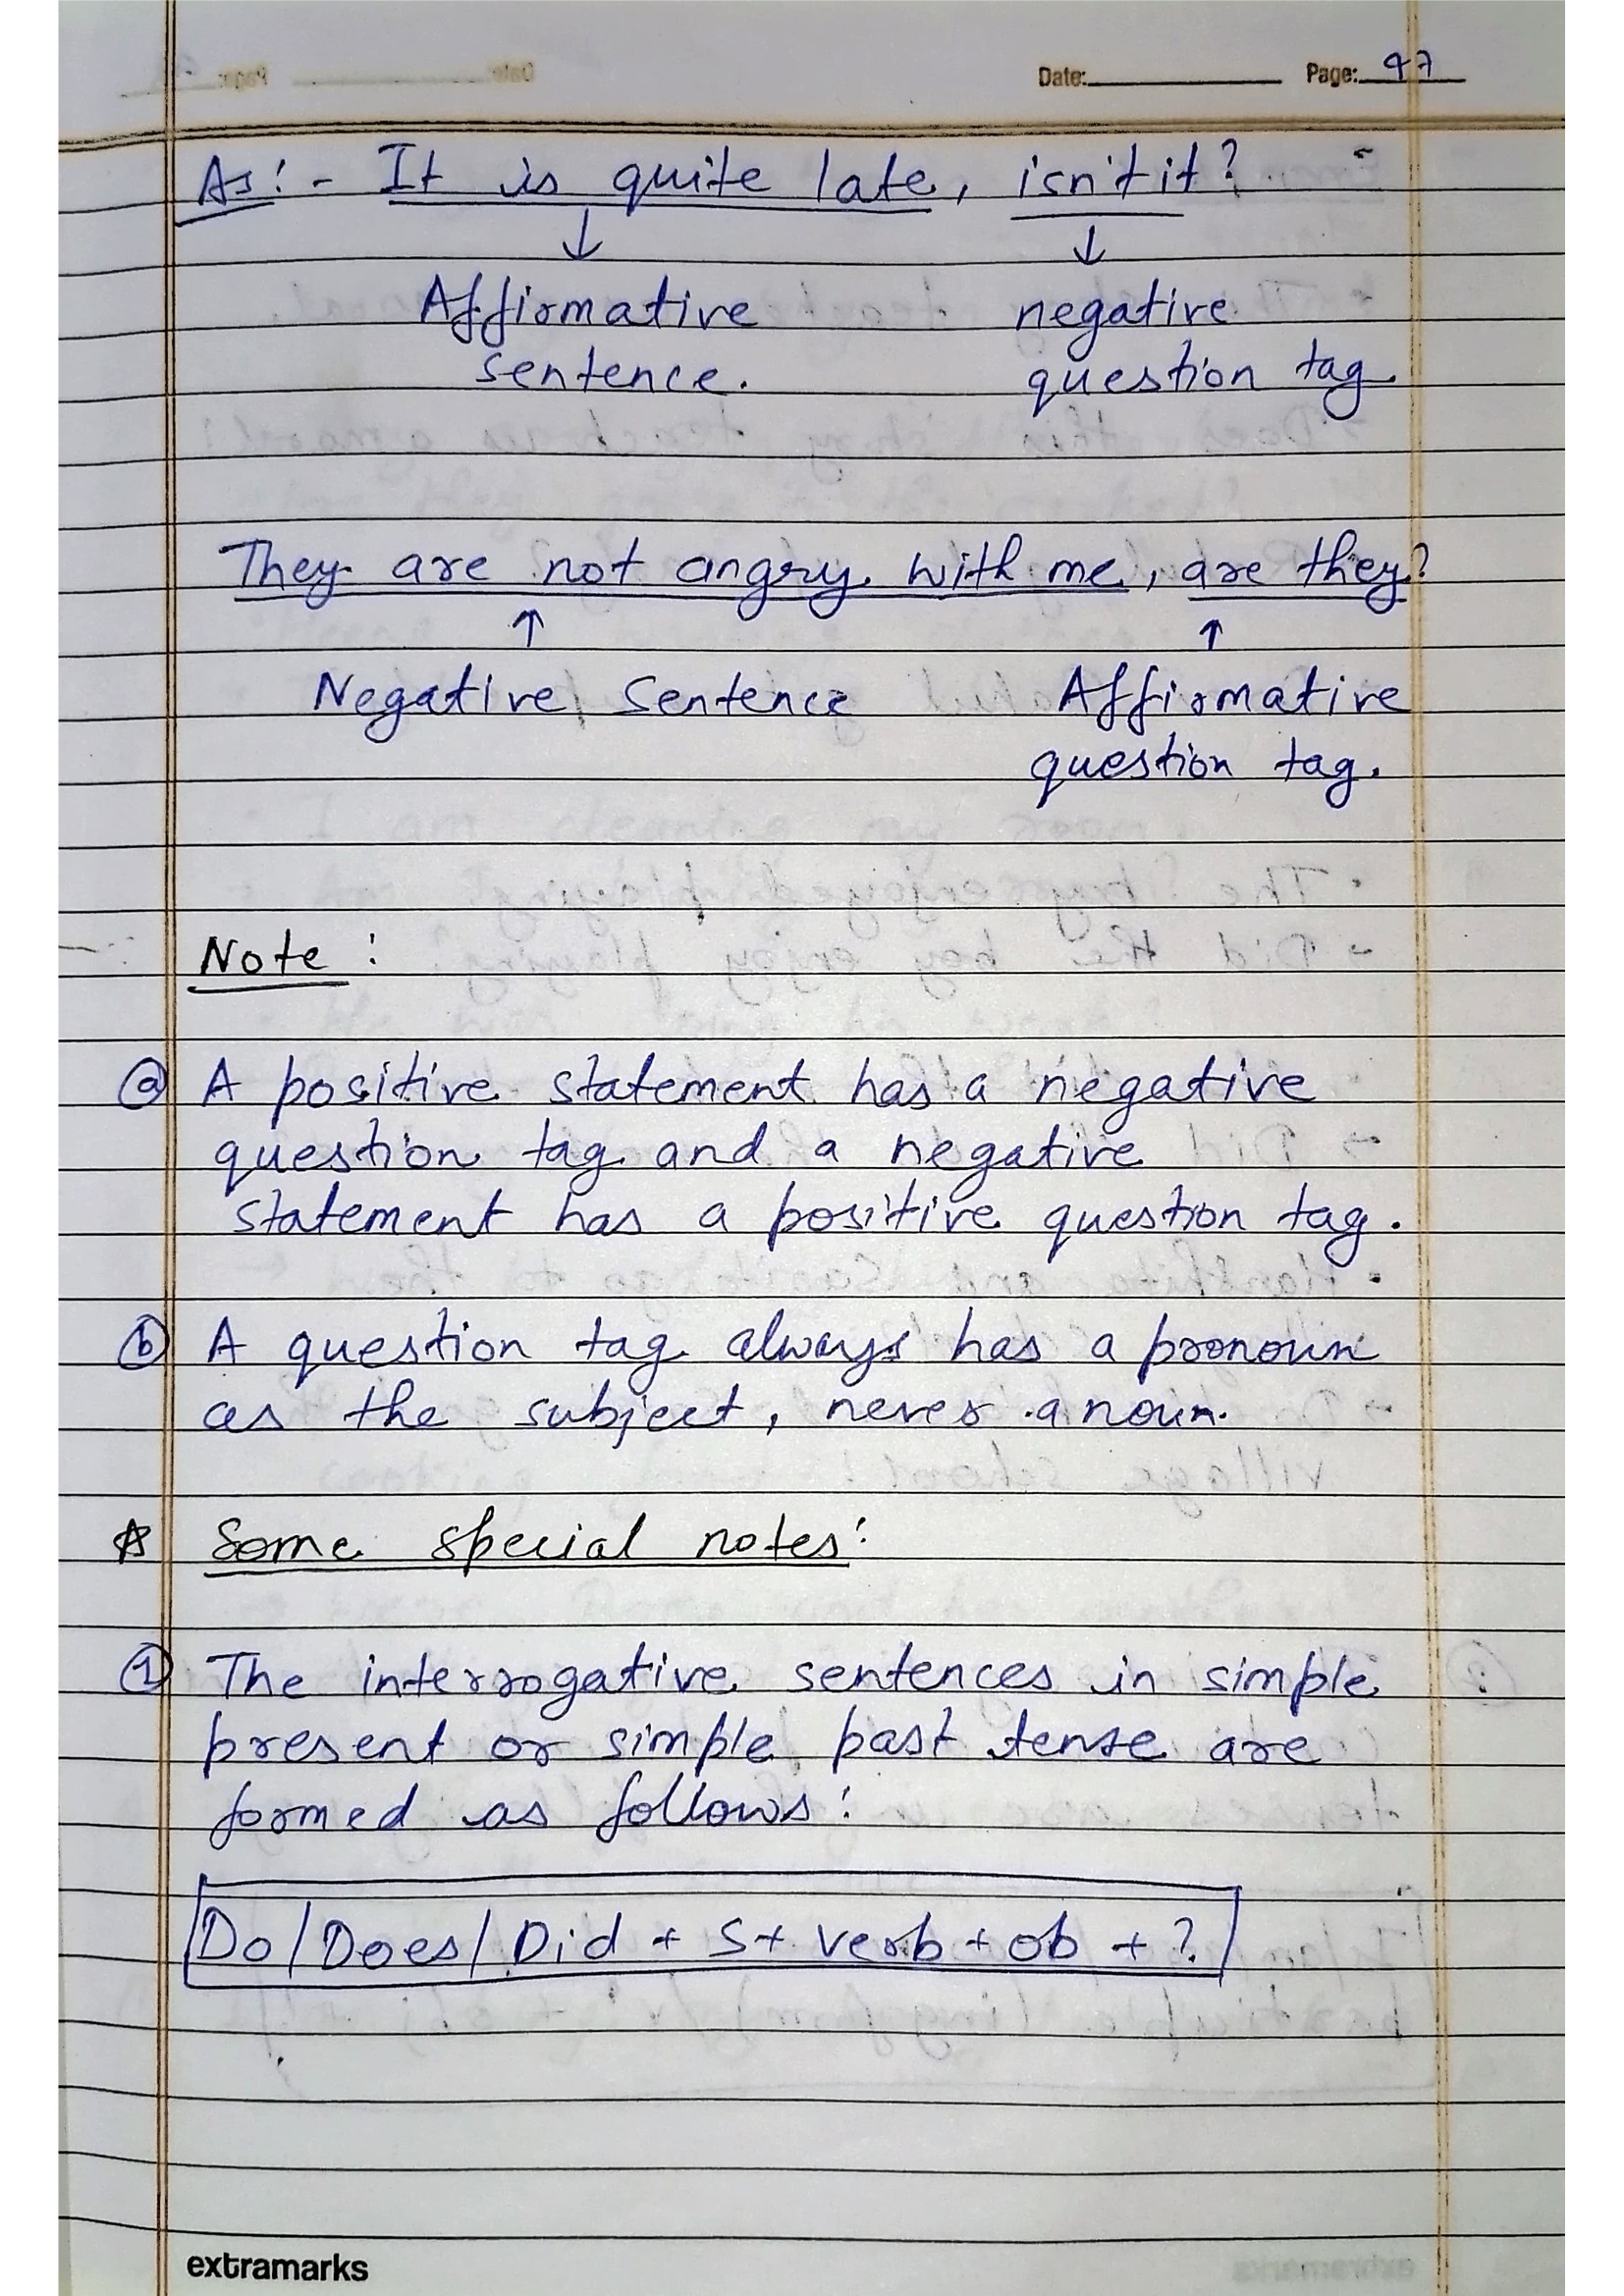 Date: Page: 97
As:- It is quite late, isn't it?
↓ ↓
Affirmative negative
sentence. question tag.
They are not angry with me, are they?
↑ ↑
Negative Sentence Affirmative
question tag.
Note:
ⓐ A positive statement has a negative
question tag and a negative
statement has a positive question tag.
ⓑ A question tag always has a pronoun
as the subject, never a noun.
☆ Some special notes:
① The interrogative sentences in simple
present or simple past tense are
formed as follows:
Do/Does/Did + S + verb + ob + ?
extramarks